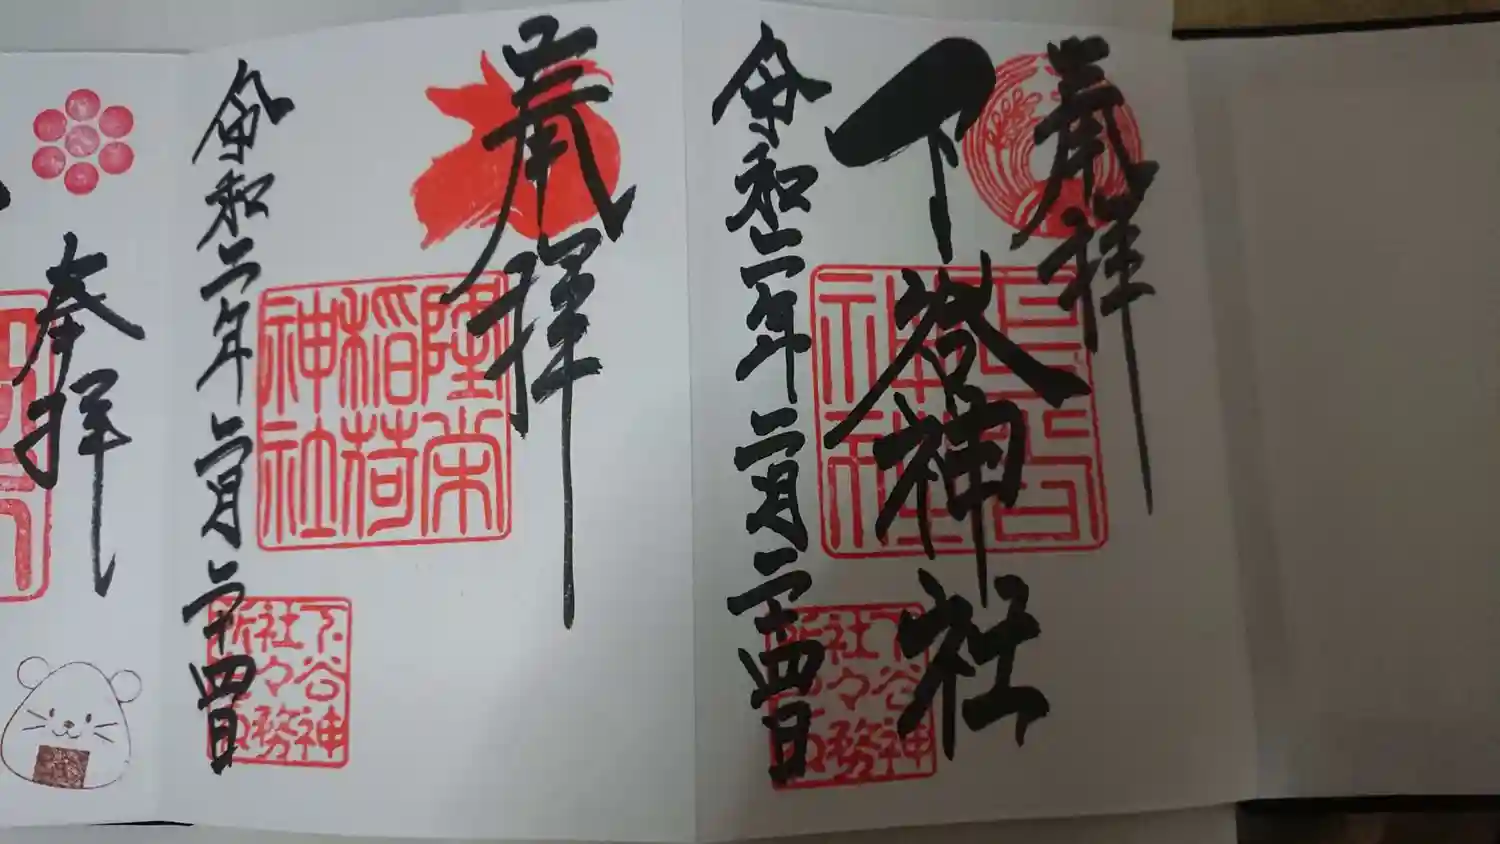 奉拝
下谷神社
令和二年二月二十四日
下谷神社
下谷神社々務所
奉拝
隆栄稲荷神社
令和二年二月二十四日
下谷神社々務所
奉拝